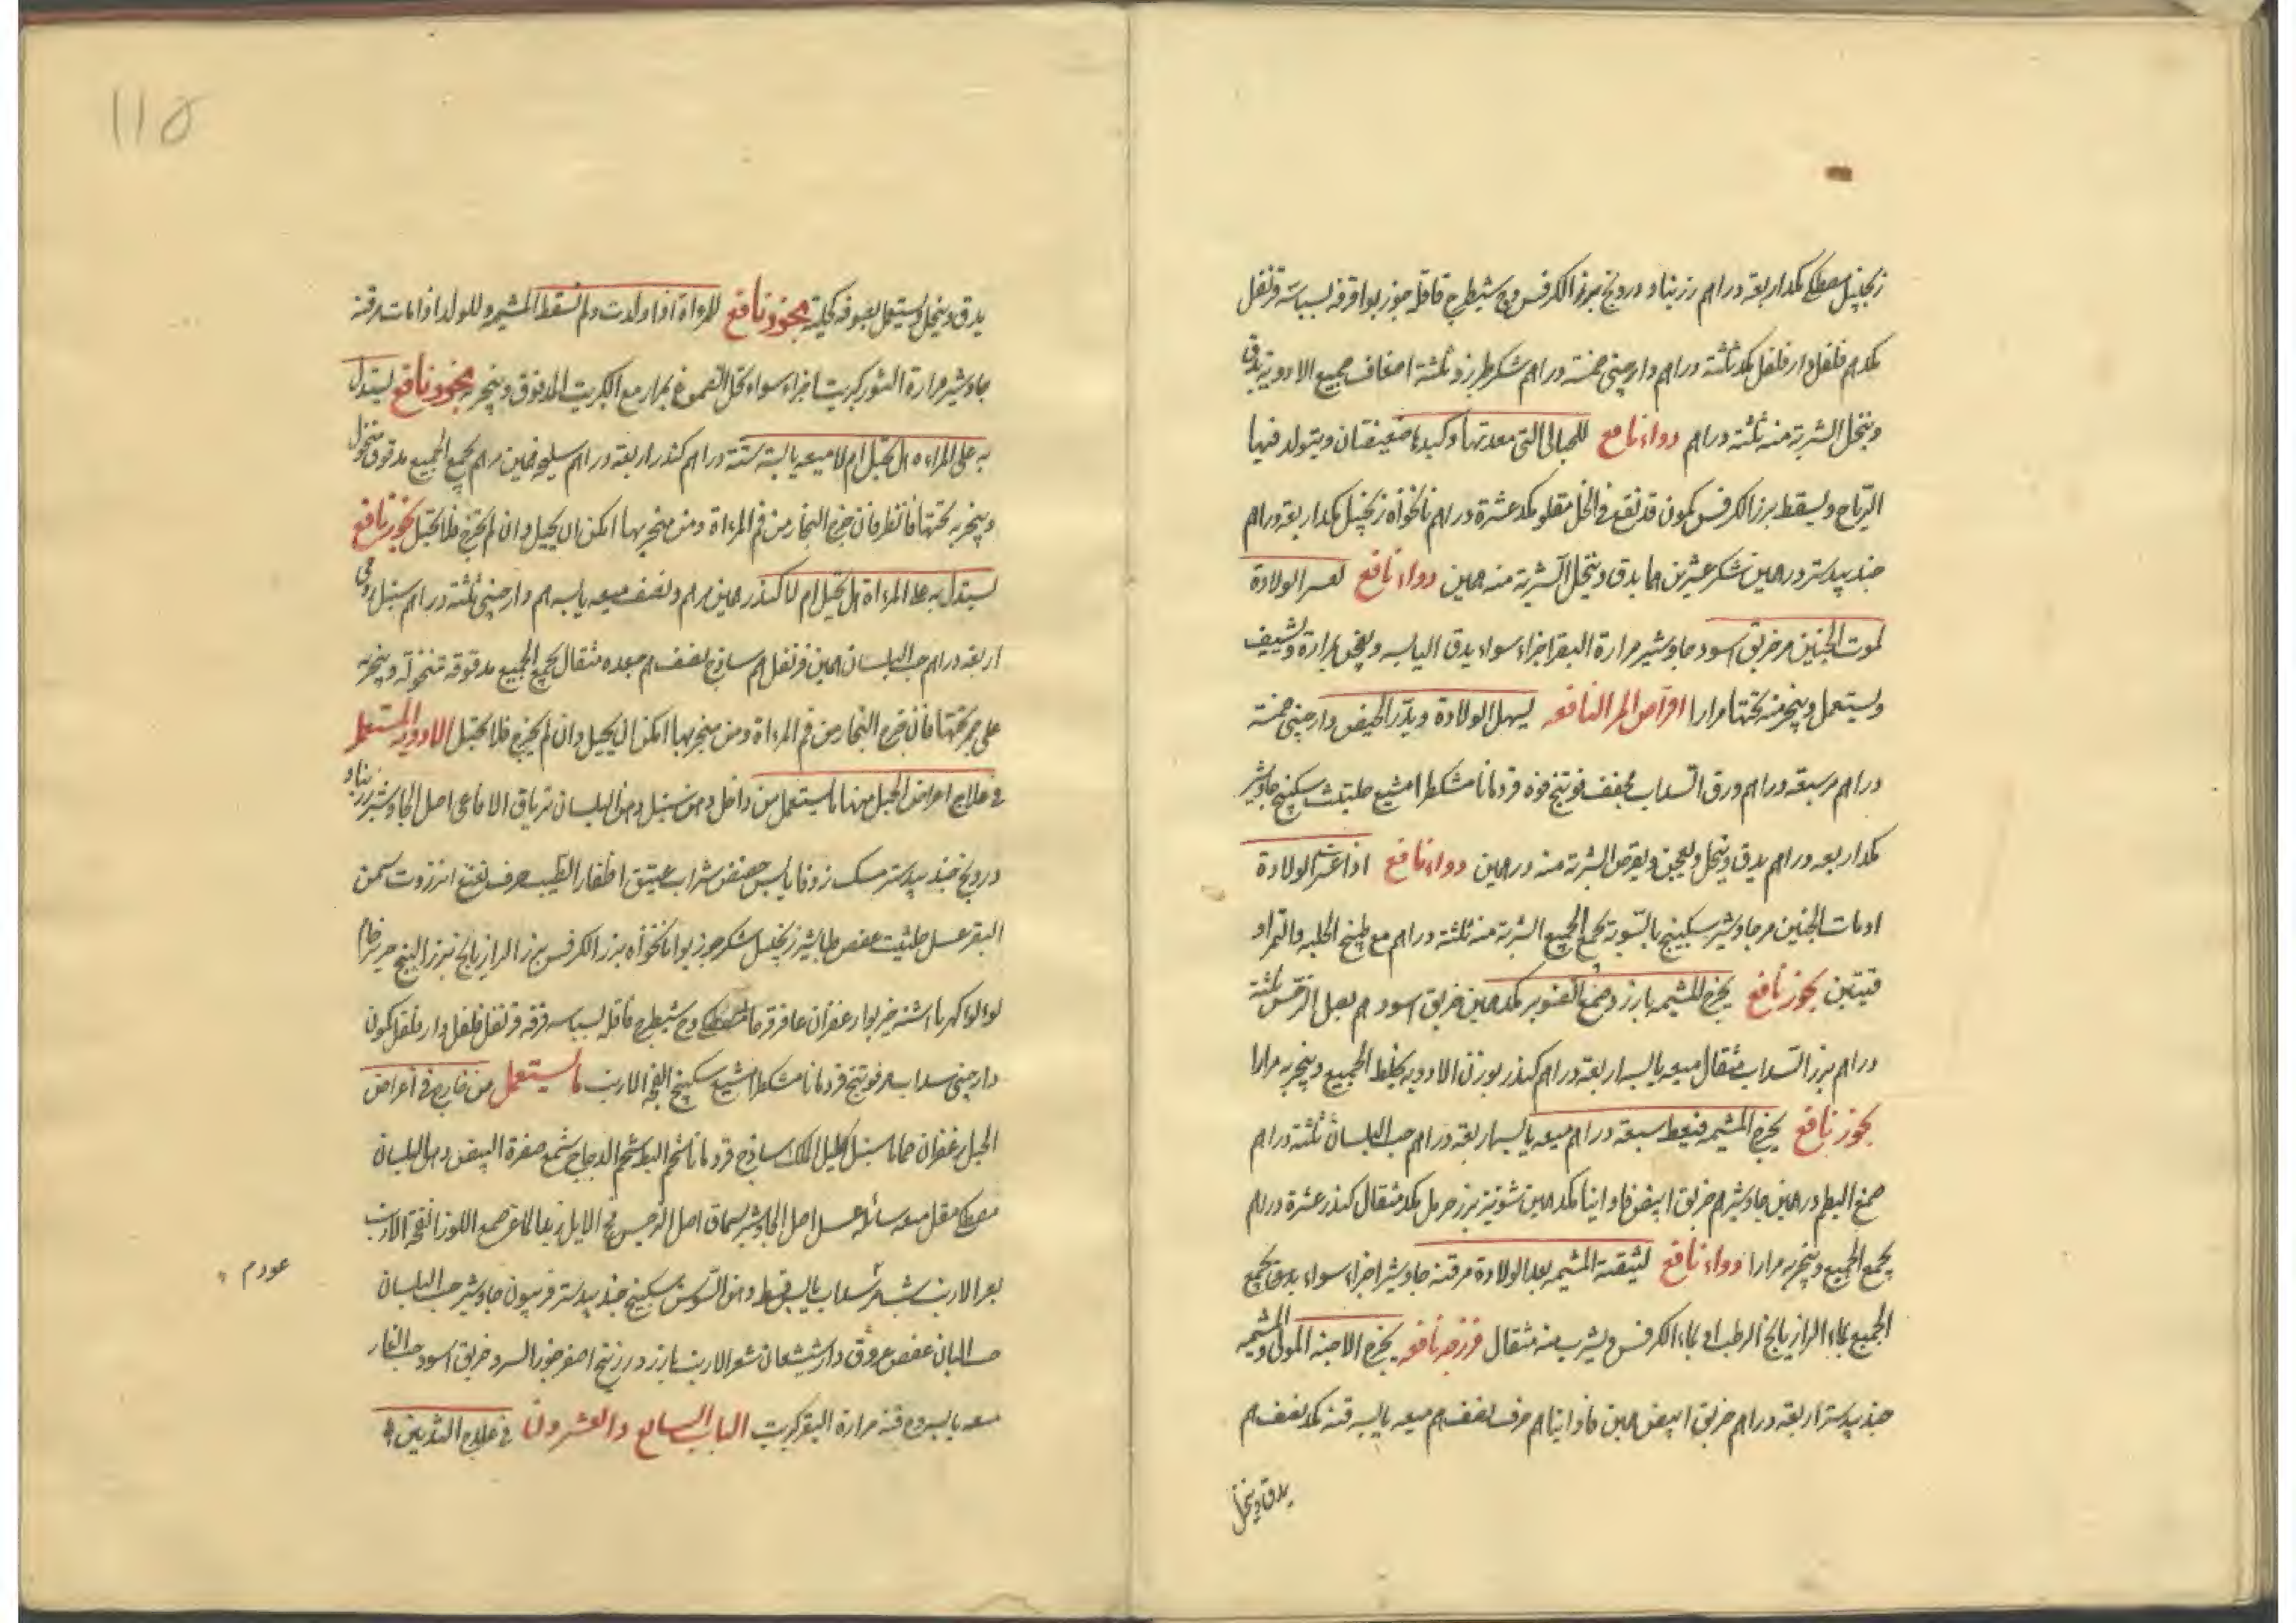 زنجبيل مصطكى مكد اربعة دراهم زرنباد درونج بزر الكرفس وج شيطرج قاقلة جوز بوا قرفه بسباسة قرنفل
مكدهم فلفل دار فلفل مكد ثلثة دراهم دارچينى خمسة دراهم سكر طبرزد ثلثة اضعاف جميع الادوية يدق
وينخل الشربة منه ثلثة دراهم دواء نافع للحبالى التى معدتها وكبدها ضعيفتان ويتولد فيها
الرياح ويسقط بزر الكرفس كمون قد نقع فى الخل مقلو مكد عشرة دراهم نانخواه زنجبيل مكد اربعة دراهم
جندبيدستر درهمين سكر عشرين هما يدق وينخل الشربة منه همين دواء نافع لعسر الولادة
لموت الجنين مر خربق اسود جاوشير مرارة البقر اجزاء سواء يدق اليابسه ويعجن بمرارة ويشيف
ويستعمل ويبخر منه تحتها مرارا اقراص المر النافعه يسهل الولادة ويدر الحيض دارچينى خمسة
دراهم مر سبعة دراهم ورق السداب مجفف فوتنج فوه قردمانا مشكطرامشيع حلتيث سكبينج جاوشير
مكد اربعه دراهم يدق وينخل ويعجن ويقرص الشربة منه درهمين دواء نافع اذا عسر الولادة
او مات الجنين مر جاوشير سكبينج بالسوية يجمع الجميع الشربة منه ثلثة دراهم مع طبيخ الحلبه والتمر او
قنيتين بخور نافع يخرج المشيمه بارزد صمغ الصنوبر مكد همين خربق اسود هم بصل النرجس ثلثة
دراهم بزر السداب مثقال ميعه يابسه اربعة دراهم كندر بوزن الادويه يخلط الجميع ويبخر به مرارا
بخور نافع يخرج المشيمه قسط سبعة دراهم ميعه يابسه اربعة دراهم حب البلسان ثلثة دراهم
صمغ البطم درهمين جاوشير هم خربق ابيض فاوانيا مكد همين شونيز بزر حرمل مكد مثقال كندر عشرة دراهم
يجمع الجميع ويبخر به مرارا دواء نافع لتنقية المشيمه بعد الولادة مر قنه جاوشير اجزاء سواء يدق يجمع
الجميع بماء الرازيانج الرطب او بماء الكرفس ويشرب منه مثقال فرزجه نافعه يخرج الاجنة الموتى والمشيمه
جندبيدستر اربعة دراهم خربق ابيض همين فاوانيا هم حرف نصف هم ميعه يابسه قنه مكد نصف هم
يدق وينخل
110
يدق وينخل ويستعمل بصوفه كليته بخور نافع للمراة اذا ولدت ولم تسقط المشيمه وللولد اذا مات مر قنه
جاوشير مرارة الثور كبريت اجزاء سواء تحل الصموغ بمرار مع الكبريت المدقوق ويبخر به بخور نافع ليستدل
به على المراءه هل تحبل ام لا ميعه يابسة ستة دراهم كندر اربعة دراهم سليخه همين مر هم يجمع الجميع مدقوق منخول
ويبخر به تحتها فانظر فان خرج البخار من فم المراة ومن منخريها امكن ان يحبل وان لم يخرج فلا تحبل بخور نافع
ليستدل به على المراة هل تحبل ام لا كندر همين مر هم ونصف ميعه يابسه هم دارچينى ثلثة دراهم سنبل
اربعة دراهم حب البلسان همين قرنفل هم ساذج نصف هم جعده مثقال يجمع الجميع مدقوقه منخولة ويبخر به
على جمر تحتها فان خرج البخار من فم المراة ومن منخريها امكن ان يحبل وان لم يخرج فلا تحبل الادويه المستعمله
فى علاج امراض الحبل منها ما يستعمل من داخل دهن سنبل دهن البلسان ترياق الافاعى اصل الجاوشير زرنباد
درونج جندبيدستر مسك زوفا يابس حضض شراب عتيق اظفار الطيب حرف نعنع انزروت سمن
البقر عسل حلتيت عفص طباشير زنجبيل سكر جوز بوا نانخواه بزر الكرفس بزر الرازيانج بزر البنج حرير خام
لولو كهربا اشنه خيربوا زعفران عاقرقرحا مصطكى وج شيطرج قاقلة بسباسه قرفه قرنفل فلفل دار فلفل كمون
دارچينى سداب مر فوتنج قردمانا مشكطرامشيع سكبينج انفحة الارنب ما يستعمل من خارج فى اعراض
الحبل زعفران حماما سنبل اكليل الملك ساذج قردمانا شحم البط شحم الدجاج شمع صفرة البيض دهن البلسان
مصطكى مقل ميعه سائله عسل اصل الجاوشير سماق اصل النرجس مخ الايل صمغ اللوز انفحة الارنب
بعر الارنب شب مر سداب يابس قسط دهن السوسن سكبينج جندبيدستر فربيون جاوشير حب البلسان
حب البان عفص عروق دارشيشعان شعر الارنب بارزد زرنيخ اصفر جوز السرو خربق اسود حب الغار
ميعه يابسه قنه مرارة البقر كبريت الباب السابع والعشرون فى علاج الثديين